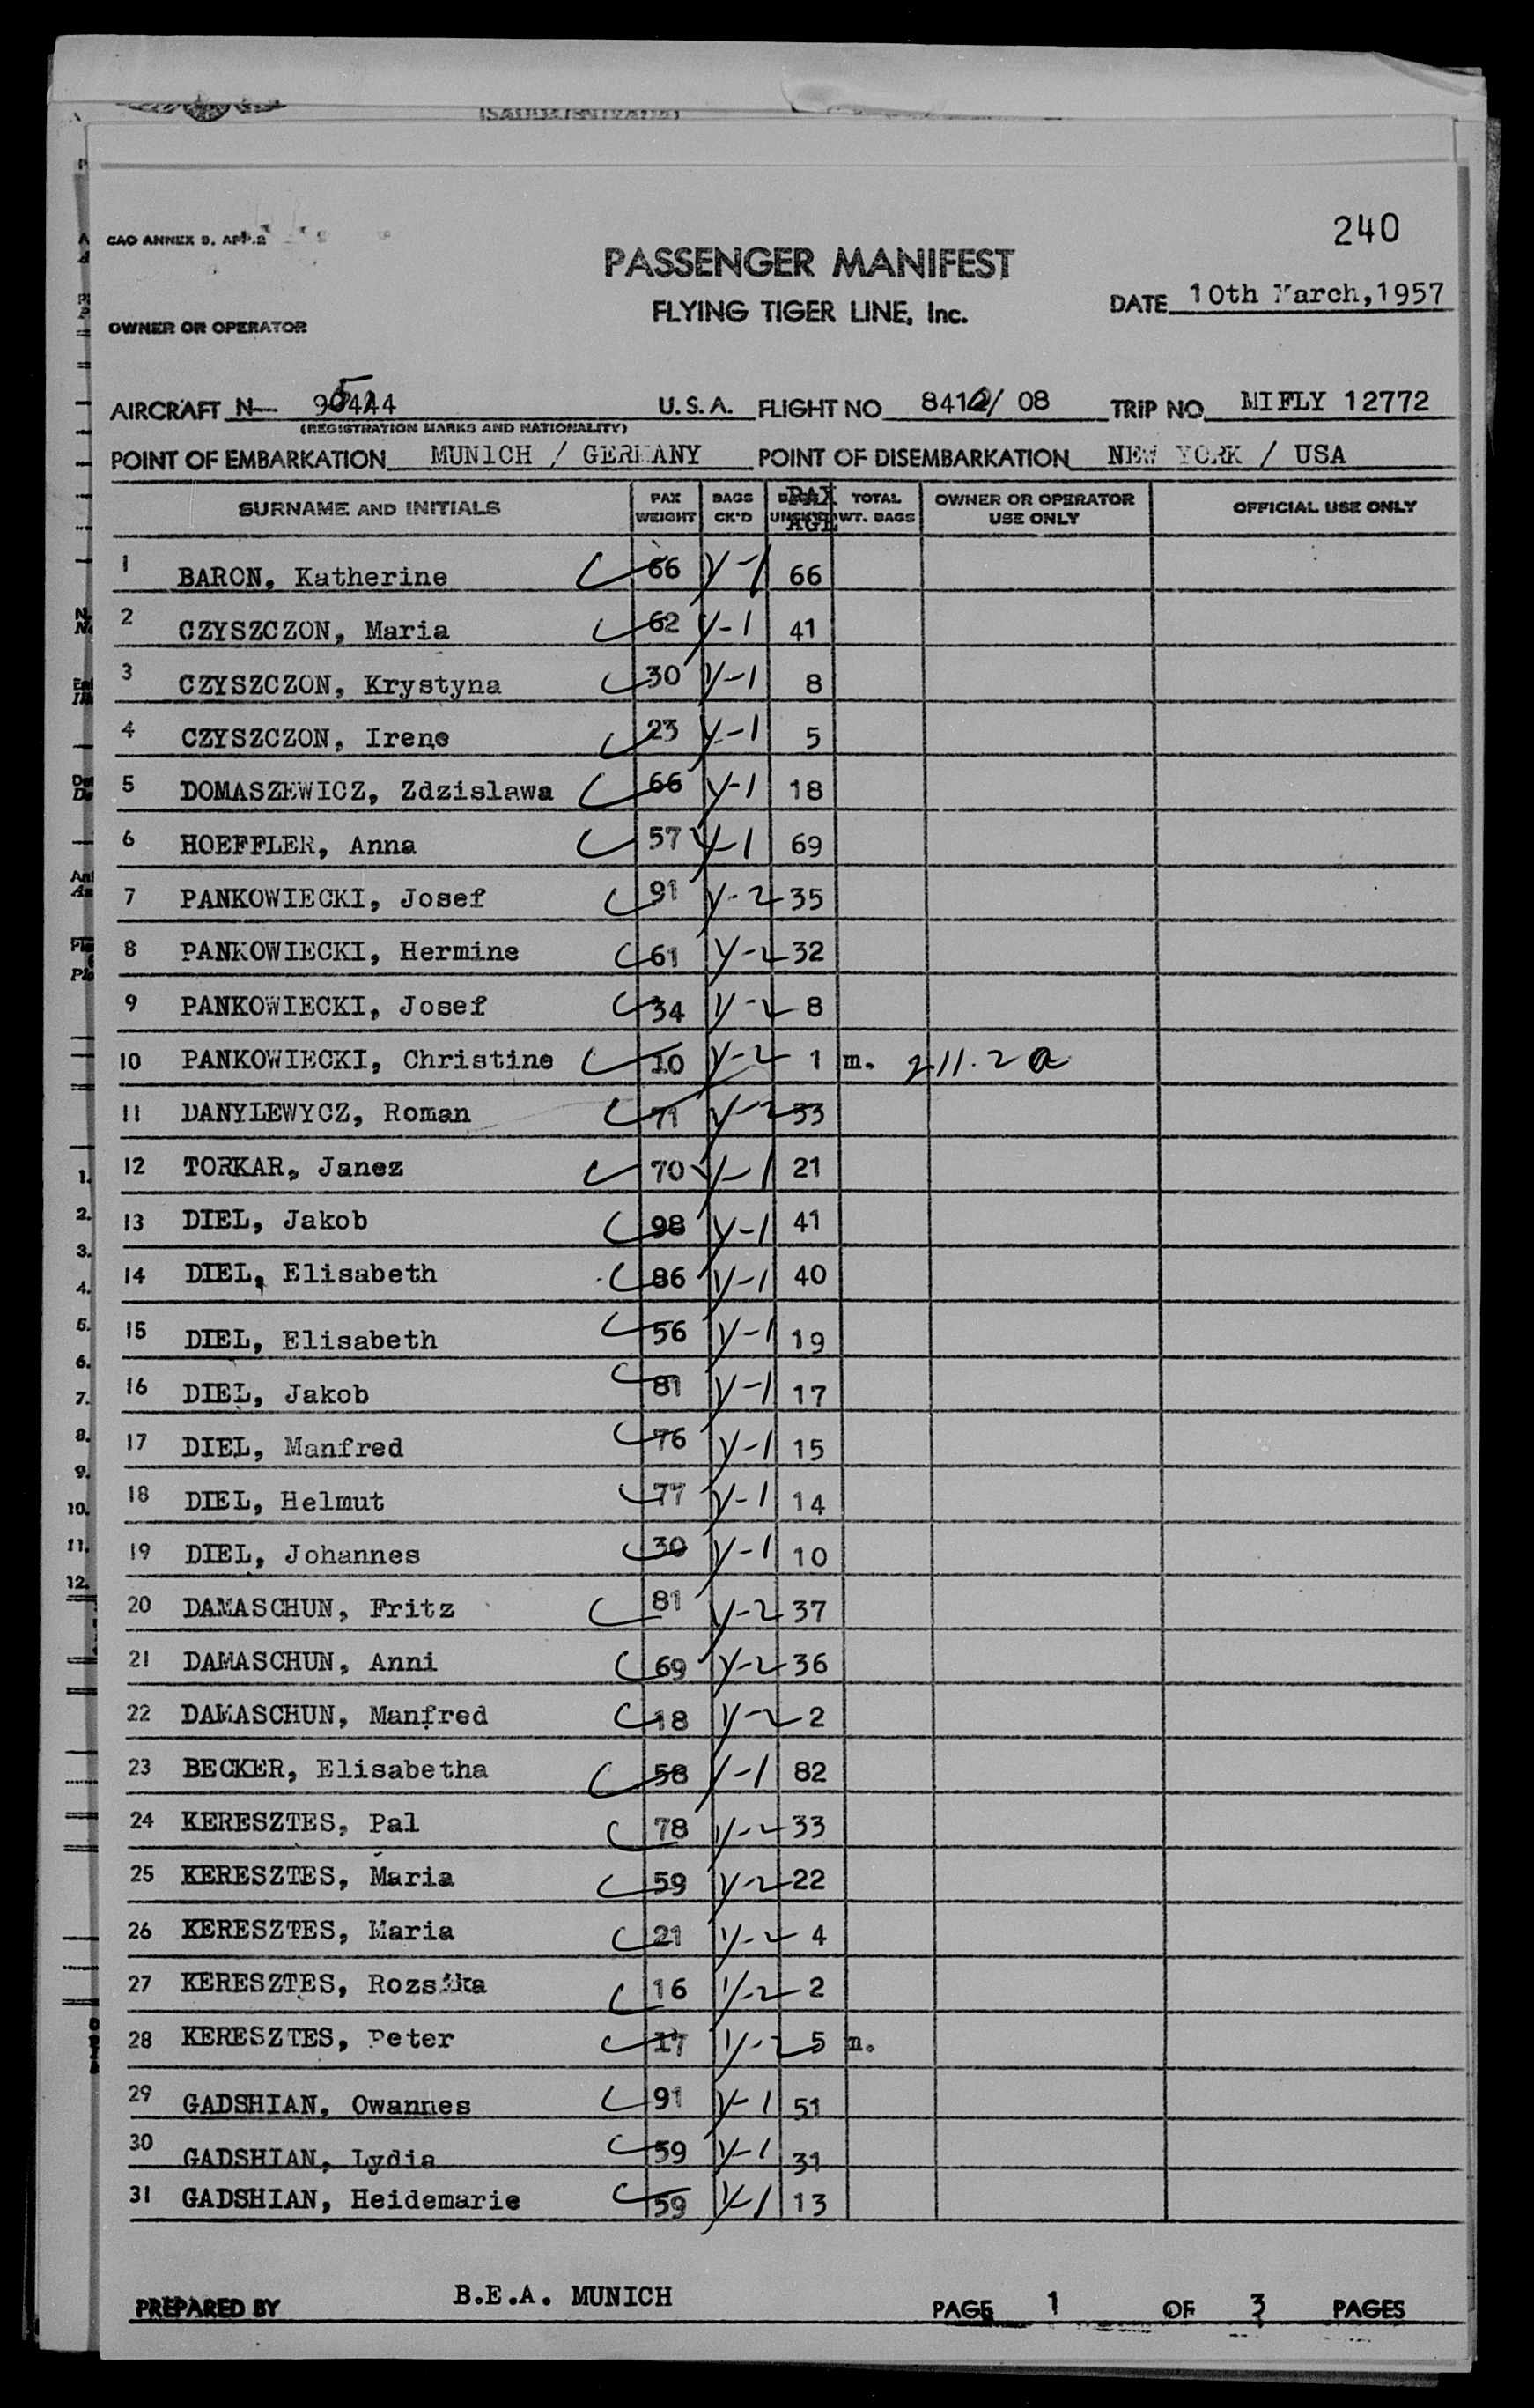 240
CAO ANNEX 9, APP.2
PASSENGER MANIFEST
FLYING TIGER LINE, Inc.
DATE 10th March, 1957
OWNER OR OPERATOR
AIRCRAFT N— U.S.A. FLIGHT NO 08 TRIP NO. MIFLY 12772
(REGISTRATION MARKS AND NATIONALITY)
POINT OF EMBARKATION MUNICH / GERMANY POINT OF DISEMBARKATION NEW YORK / USA
SURNAME AND INITIALS PAX WEIGHT BAGS CK'D PAX AGE TOTAL WT. BAGS OWNER OR OPERATOR USE ONLY OFFICIAL USE ONLY
1 BARON, Katherine 66 Y-1 66
2 CZYSZCZON, Maria 62 Y-1 41
3 CZYSZCZON, Krystyna 30 Y-1 8
4 CZYSZCZON, Irene 23 Y-1 5
5 DOMASZEWICZ, Zdzislawa 66 Y-1 18
6 HOEFFLER, Anna 57 Y-1 69
7 PANKOWIECKI, Josef 91 Y-2 35
8 PANKOWIECKI, Hermine 61 Y-2 32
9 PANKOWIECKI, Josef 34 Y-2 8
10 PANKOWIECKI, Christine 10 Y-2 1 m. 211.2a
11 DANYLEWYCZ, Roman 71 Y-2 33
12 TORKAR, Janez 70 Y-1 21
13 DIEL, Jakob 98 Y-1 41
14 DIEL, Elisabeth 86 Y-1 40
15 DIEL, Elisabeth 56 Y-1 19
16 DIEL, Jakob 81 Y-1 17
17 DIEL, Manfred 76 Y-1 15
18 DIEL, Helmut 77 Y-1 14
19 DIEL, Johannes 30 Y-1 10
20 DAMASCHUN, Fritz 81 Y-2 37
21 DAMASCHUN, Anni 69 Y-2 36
22 DAMASCHUN, Manfred 18 Y-2 2
23 BECKER, Elisabetha 58 Y-1 82
24 KERESZTES, Pal 78 Y-2 33
25 KERESZTES, Maria 59 Y-2 22
26 KERESZTES, Maria 21 Y-2 4
27 KERESZTES, 16 Y-2 2
28 KERESZTES, Peter 17 Y-2 5 m.
29 GADSHIAN, Owannes 91 Y-1 51
30 GADSHIAN, Lydia 59 Y-1 31
31 GADSHIAN, Heidemarie 59 Y-1 13
PREPARED BY B.E.A. MUNICH PAGE 1 OF 3 PAGES